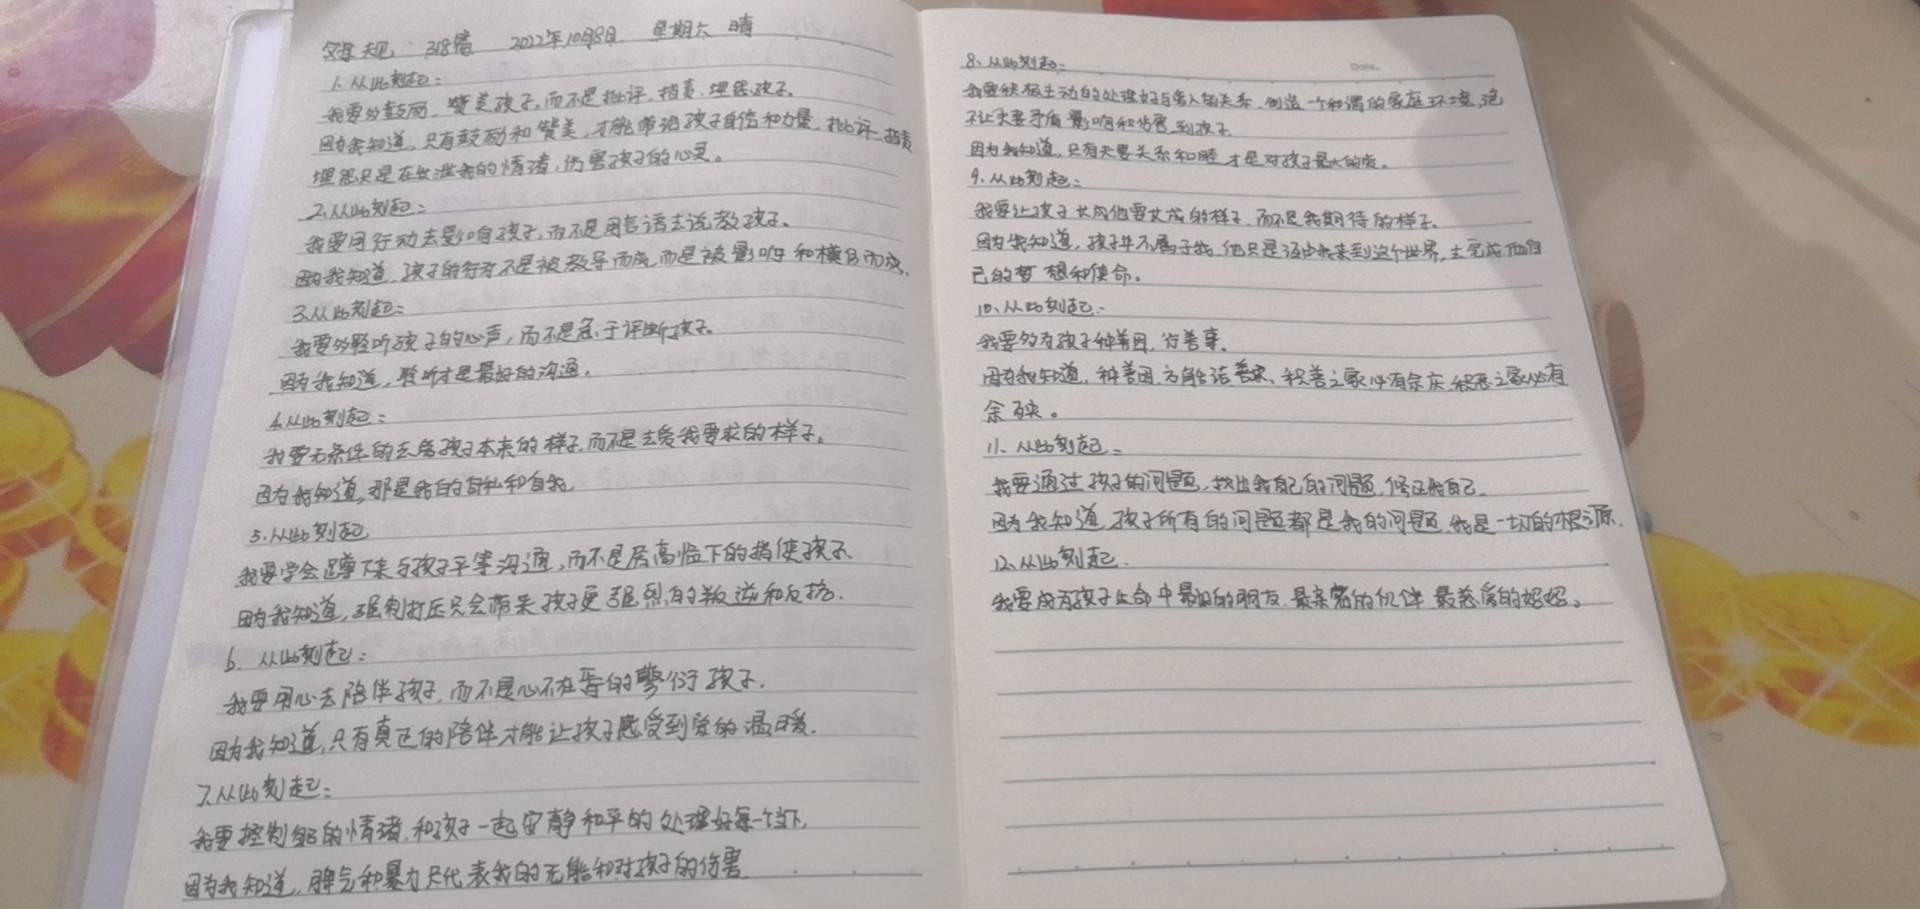 父母规 318遍 2022年10月8日 星期六 晴
1.从此刻起:
我要多鼓励、赞美孩子,而不是批评、指责、埋怨孩子。
因为我知道,只有鼓励和赞美,才能带给孩子自信和力量,批评、指责
埋怨只是在发泄我的情绪,伤害孩子的心灵。
2.从此刻起:
我要用行动去影响孩子,而不是用言语去说教孩子。
因为我知道,孩子的行为不是被教导而成,而是被影响和模仿而成。
3.从此刻起:
我要多聆听孩子的心声,而不是急于评断孩子。
因为我知道,聆听才是最好的沟通。
4.从此刻起:
我要无条件的去爱孩子本来的样子,而不是去爱我要求的样子。
因为我知道,那是我的自私和自我。
5.从此刻起
我要学会蹲下来与孩子平等沟通,而不是居高临下的指使孩子、
因为我知道,强制打压只会带来孩子更强烈的叛逆和反抗.
6.从此刻起:
我要用心去陪伴孩子,而不是心不在焉的敷衍孩子.
因为我知道,只有真正的陪伴才能让孩子感受到爱的温暖.
7.从此刻起:
我要控制自己的情绪,和孩子一起安静和平的处理好每一个当下,
因为我知道,脾气和暴力只代表我的无能和对孩子的伤害
8、从此刻起:
Date.
我要积极主动的处理好与家人的关系,创造一个和谐的家庭环境,绝
不让夫妻矛盾影响和伤害到孩子
因为我知道,只有夫妻关系和睦才是对孩子最大的爱。
9.从此刻起:
我要让孩子长成他要长成的样子,而不是我期待的样子。
因为我知道,孩子并不属于我,他只是经由我来到这个世界,去完成他自
己的梦想和使命。
10、从此刻起:
我要多为孩子种善因,行善事.
因为我知道,种善因,方能结善果、积善之家必有余庆,积恶之家必有
余殃。
11、从此刻起:
我要通过孩子的问题,找出我自己的问题,修正我自己.
因为我知道,孩子所有的问题都是我的问题,我是一切的根源.
12、从此刻起.
我要成为孩子生命中最好的朋友、最亲密的伙伴 最慈爱的妈妈。